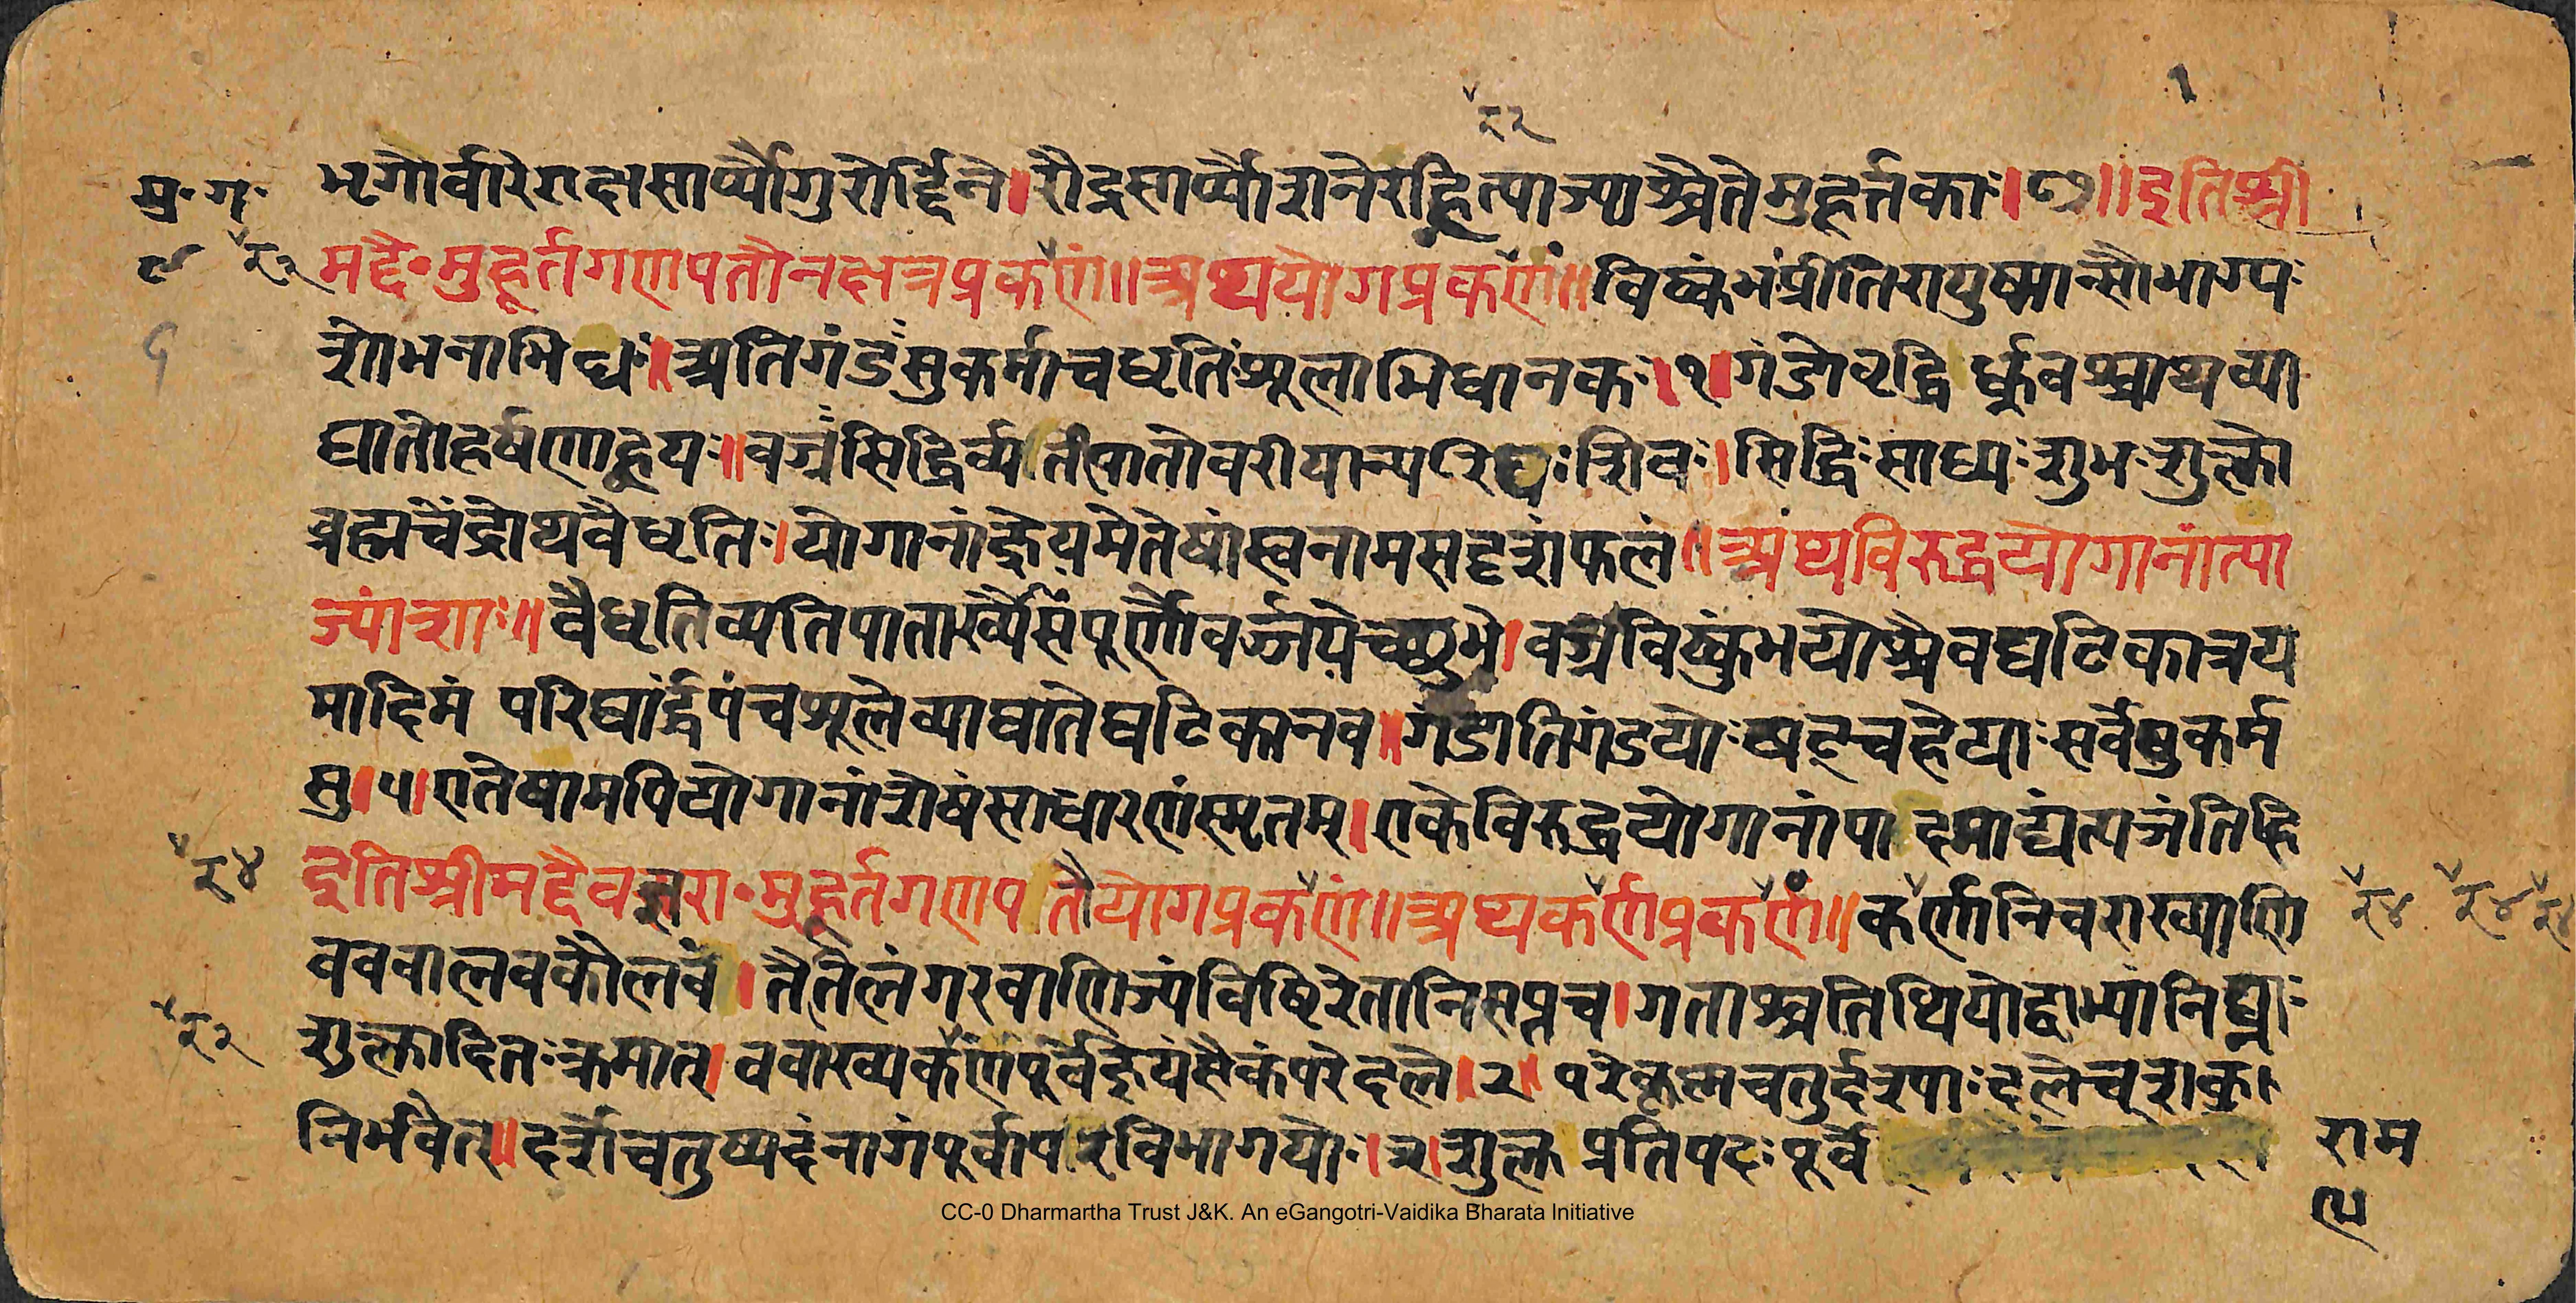 र२
मु॰ग॰
भृगोर्वारेराक्षसार्प्यौगुरोर्द्दिने।रौद्रसार्प्यौशनेरह्नित्याज्याश्चैतेमुहूर्त्तकाः।८७॥इतिश्री
र३ मद्दै॰मुहूर्तगणपतौनक्षत्रप्रकर्णं॥अथयोगप्रकर्णं॥विष्कंभंप्रीतिरायुष्मान्सौभाग्यः
शोभनाभिधः॥अतिगंडंसुकर्माचधृतिंशूलाभिधानकः।१॥गंडोवृद्धिर्ध्रुवश्चाथव्या
घातोहर्षणाह्वयः॥वज्रंसिद्धिर्व्यतीपातोवरीयान्परिघःशिवः।सिद्धिःसाध्यःशुभःशुक्लो
ब्रह्मचैंद्रोथवैधृतिः।योगानांज्ञेयमेतेषांस्वनामसदृशंफलं॥अंथविरुद्धयोगानांत्या
ज्यांशाः॥वैधृतिव्यतिपाताख्यैसंपूर्णौवर्ज्जयेच्छुभे।वज्रविष्कुंभयोश्चैवघटिकात्रय
मादिमं परिघार्द्धंपंचशूलेव्याघातेघटिकानव॥गंडातिगंडयोःषट्चहेयाःसर्वेषुकर्म
सु।५।एतेषामपियोगानांशेषंसाधारणंस्मृतम्।एकेविरुद्धयोगानांपादमाद्यंत्यजंतिहि
र४ इतिश्रीमद्दैवज्ञरा॰मुहूर्तगणपतौयोगप्रकर्णं॥अथकर्णप्रकर्णं॥कर्णानिचराख्याणि र४ र४
ववबालवकौलवं।तैतैलंगरवाणिज्यंविष्टिरेतानिसप्तच।गताश्चतिथियोद्वाभ्यांनिघ्नाः
र२ शुक्लादितःक्रमात्।ववाख्यकर्णंपूर्वेज्ञेयंसैकंपरेदले॥२॥परेकृष्णचतुर्दश्याःदलेचशकु
निर्भवेत्॥दर्शेचतुष्पदंनागंपूर्वापरविभागयोः।३।शुक्लप्रतिपदःपूर्वे
राम
CC-0 Dharmartha Trust J&K. An eGangotri-Vaidika Bharata Initiative